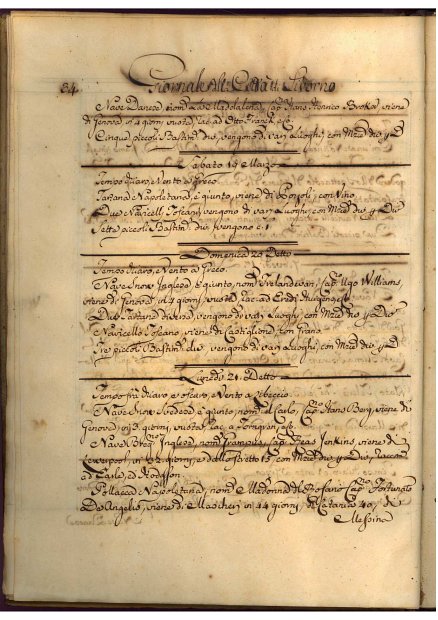 84 Giornale
Livorno
Nave Danese, nom.ª la Madalalena, Cap.º Hans Henrico viene
di Genova in 4 giorni vuota, rac. ad Otto Franck, e
Cinque piccoli Bastim.ti div. vengono di varj Luoghi, con Merc. div. p D
Sabato 19 Marzo
Tempo chiaro, e Vento a Greco
Tartana Napoletana, è giunto, viene di Pozzoli, con Vino
Due Navicelli Toscani, vengono di varj Luoghi, con Merc. div. p Div.
Sette piccoli Bastim. div. vengono c. s.
Domenica 20 Detto
Tempo chiaro, Vento a Greco
Nave Snow Inglese è giunto, nom. Cap. Ugo Williams,
viene di Genova in 4 giorni, vuota, rac. a Eredi
Due Tartane diverse, vengono di varj Luoghi, con Merc. div. p Div.
Navicello Toscano, viene di Castiglione, con Grano
Tre piccoli Bastim. div. vengono di varj Luoghi, con Merc. div. p D
Lunedi 21 Detto
Tempo frà chiaro e oscuro, e Vento a Libeccio
Nave Snow Svedese è giunto, nom. il Carlo, Cap. Hans Berg, viene di
Genova in 3 giorni, vuota, rac. a
Nave Inglese, nom. Cap. Jenkins, viene di
Liverpool, in giorni, e dallo Stretto 15, con Merc. div. p Div. Racc.
ad Earle, ed Hodgson
Pollacca Napoletana, nom. Madonna del Cap. Fortunato
De Angelis, viene di Mascheri in 14 giorni, di Catania 40, di
Messina